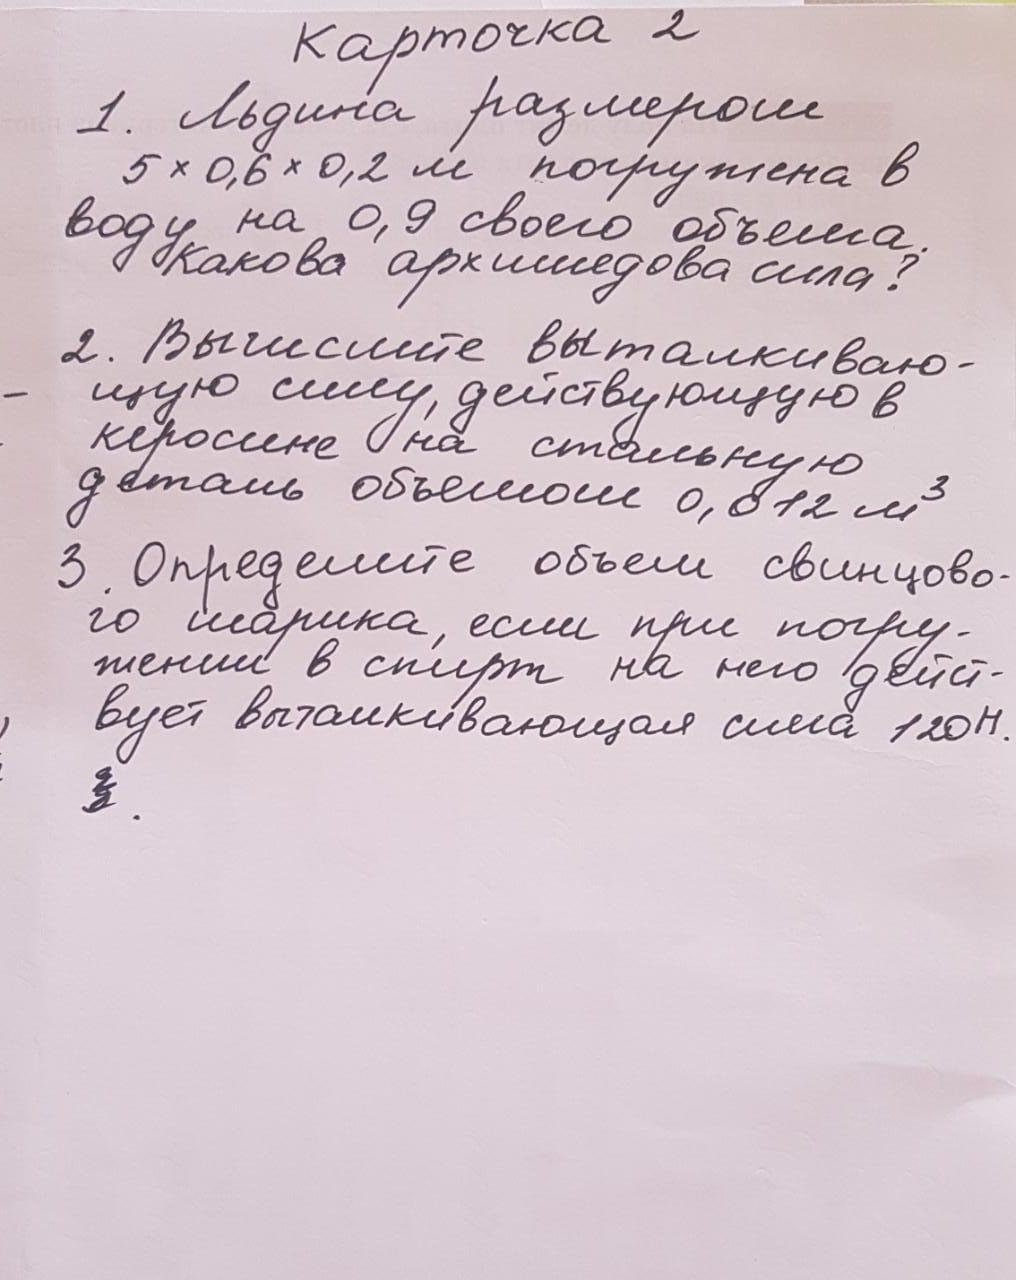 Карточка 2
1. Льдина размером
5 × 0,6 × 0,2 м погружена в
воду на 0,9 своего объема.
Какова архимедова сила?
2. Вычислите выталкиваю-
щую силу, действующую в
керосине на стальную
деталь объемом 0,012 м³
3. Определите объем свинцово-
го шарика, если при погру-
жении в спирт на него дейст-
вует выталкивающая сила 120Н.